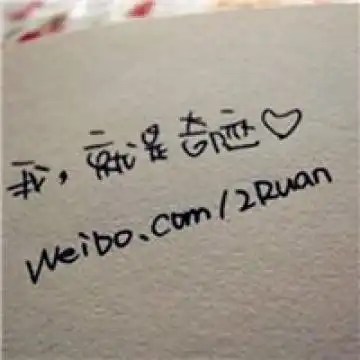 我，就是奇迹♡
Weibo.com/2Ruan